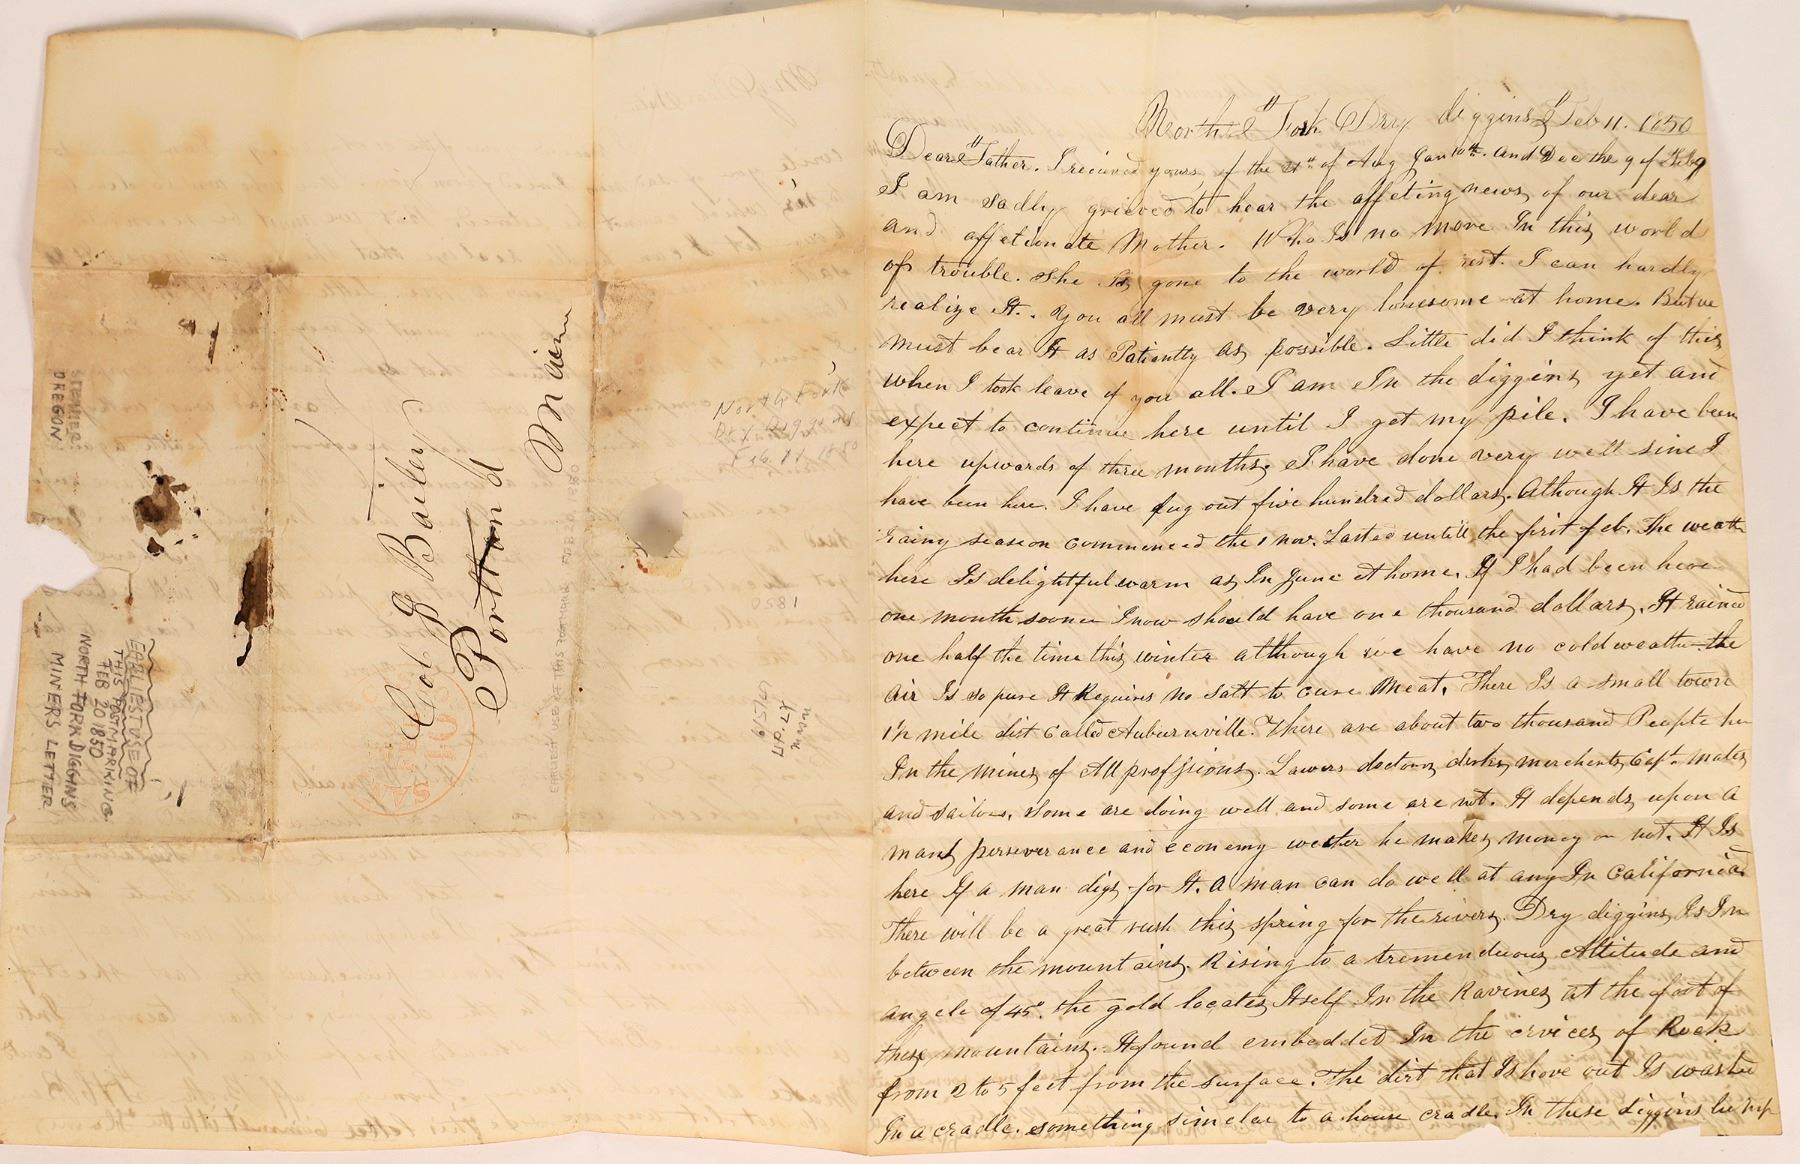 North Fork Dry diggins Feb 11. 1850
Dear Father. I recieved yours of the 21st of Aug Jan 10th. and Dec the 9 of Feb 9
I am sadly grieved to hear the affeting news of our dear
and affetionate Mother. Who Is no more In this world
of trouble. She Is gone to the world of rest. I can hardly
realize It. You all must be very lonesome at home. But we
must bear It as Patiently as possible. Little did I think of this
when I took leave of you all. I am In the diggins yet and
expect to continue here until I get my pile. I have been
here upwards of three months, I have done very well sine I
have been here. I have dug out five hundred dollars. Although It Is the
rainy season commenced the 1 nov. Lasted untill the first feb. The weath
here Is delightful warm as In June at home, If I had been here
one month sooner I now should have one thousand dollars, It rained
one half the time this winter although we have no cold weather the
air Is so pure It Requires no Salt to cure Meat, There Is a small town
1½ mile dist called Auburnville. There are about two thousand People her
In the mines of All proffsions. Lawers doctors clerks merchents Capt. mates
and sailors, some are doing well and some are not. It depends upon a
mans perseverance and econemy weather he makes money or not. It Is
here If a man digs for It. A man can do well at any In California.
There will be a great rush this spring for the rivers. Dry diggins Is In
between the mountains. Rising to a tremenduous Altitude and
angele of 45°. the gold locates Itself In the Ravines at the foot of
these mountains. It found embedded In the crvices of Rock
from 2 to 5 feet from the surface. The dirt that Is hove out Is washed
In a cradle. something simelar to a house cradle. In these diggins
Col J Bailey
Portland
Maine
North Fork
Dry Diggings
Feb. 11 1850
1850
STEAMER
OREGON
EARLIEST USE OF
THIS POSTMARKING
FEB 20 1850
NORTH FORK DIGGINS
MINERS LETTER
EARLIEST USE OF THIS POSTMARK FEB 20 1850